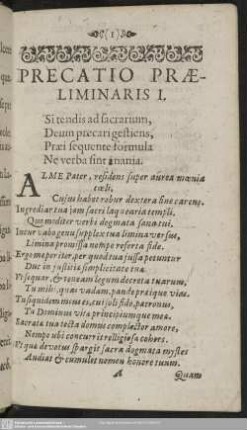 (1)
PRECATIO PRÆ-
LIMINARIS I.
Si tendis ad sacrarium,
Deum precari gestiens,
Præi sequente formula
Ne verba sint inania.
ALME Pater, residens super aurea mœnia
cœli,
Cujus habet robur dextera fine carens.
Ingrediar tua jam sacri laquearia templi,
Quo mediter verbi dogmata sana tui.
Incurvabo genu supplex tua limina versus,
Limina promissa nempe referta fide.
Ergo me per iter, per quod tua jussa petuntur
Duc in justitia simplicitate tua.
Ut sequar, & teneam legum decreta tuarum,
Tu mihi, quà vadam, pande præique viam.
Tu siquidem meus es, cui soli fido, patronus,
Tu Dominus vitæ principiumque meæ.
Sacrata tua tecta domus complector amore,
Nempe ubi concurrit religiosa cohors.
Utque devotus spargit sacra dogmata mystes
Audiat & cumulet nomen honore tuum.
A
Quam